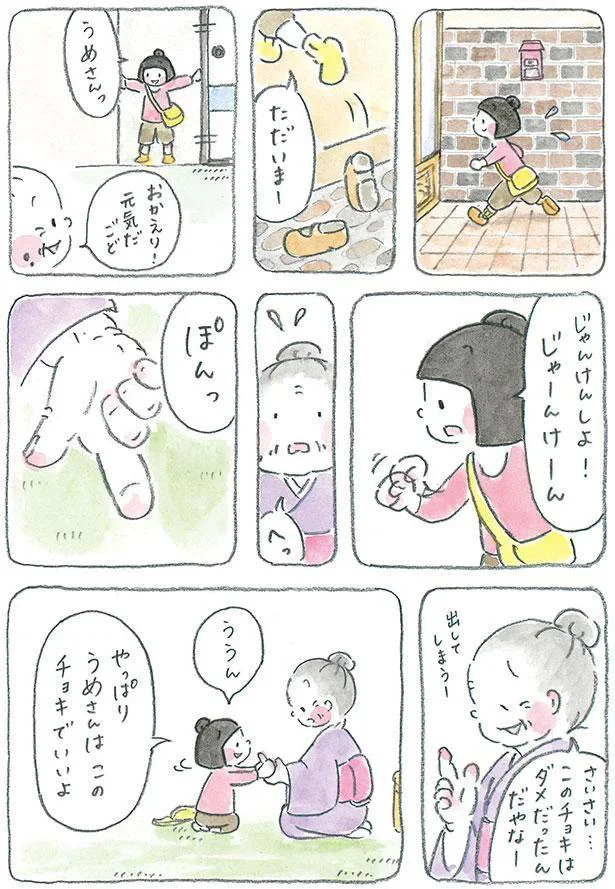 ただいまー
うめさんっ
おかえり!
元気だ
ごど
じゃんけんしよ!
じゃーんけーん
へっ
ぽんっ
出して
しまうー
さいさい…
このチョキは
ダメだったん
だやなー
ううん
やっぱり
うめさんは この
チョキでいいよ